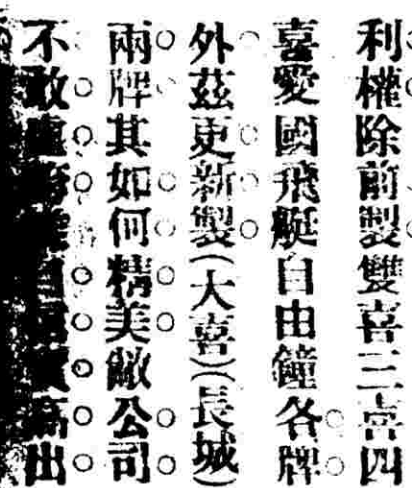 利權除前製雙喜三喜四
喜愛國飛艇自由鐘各牌
外茲更新製(大喜)(長城)
兩牌其如何精美敝公司
不敢 自 高出